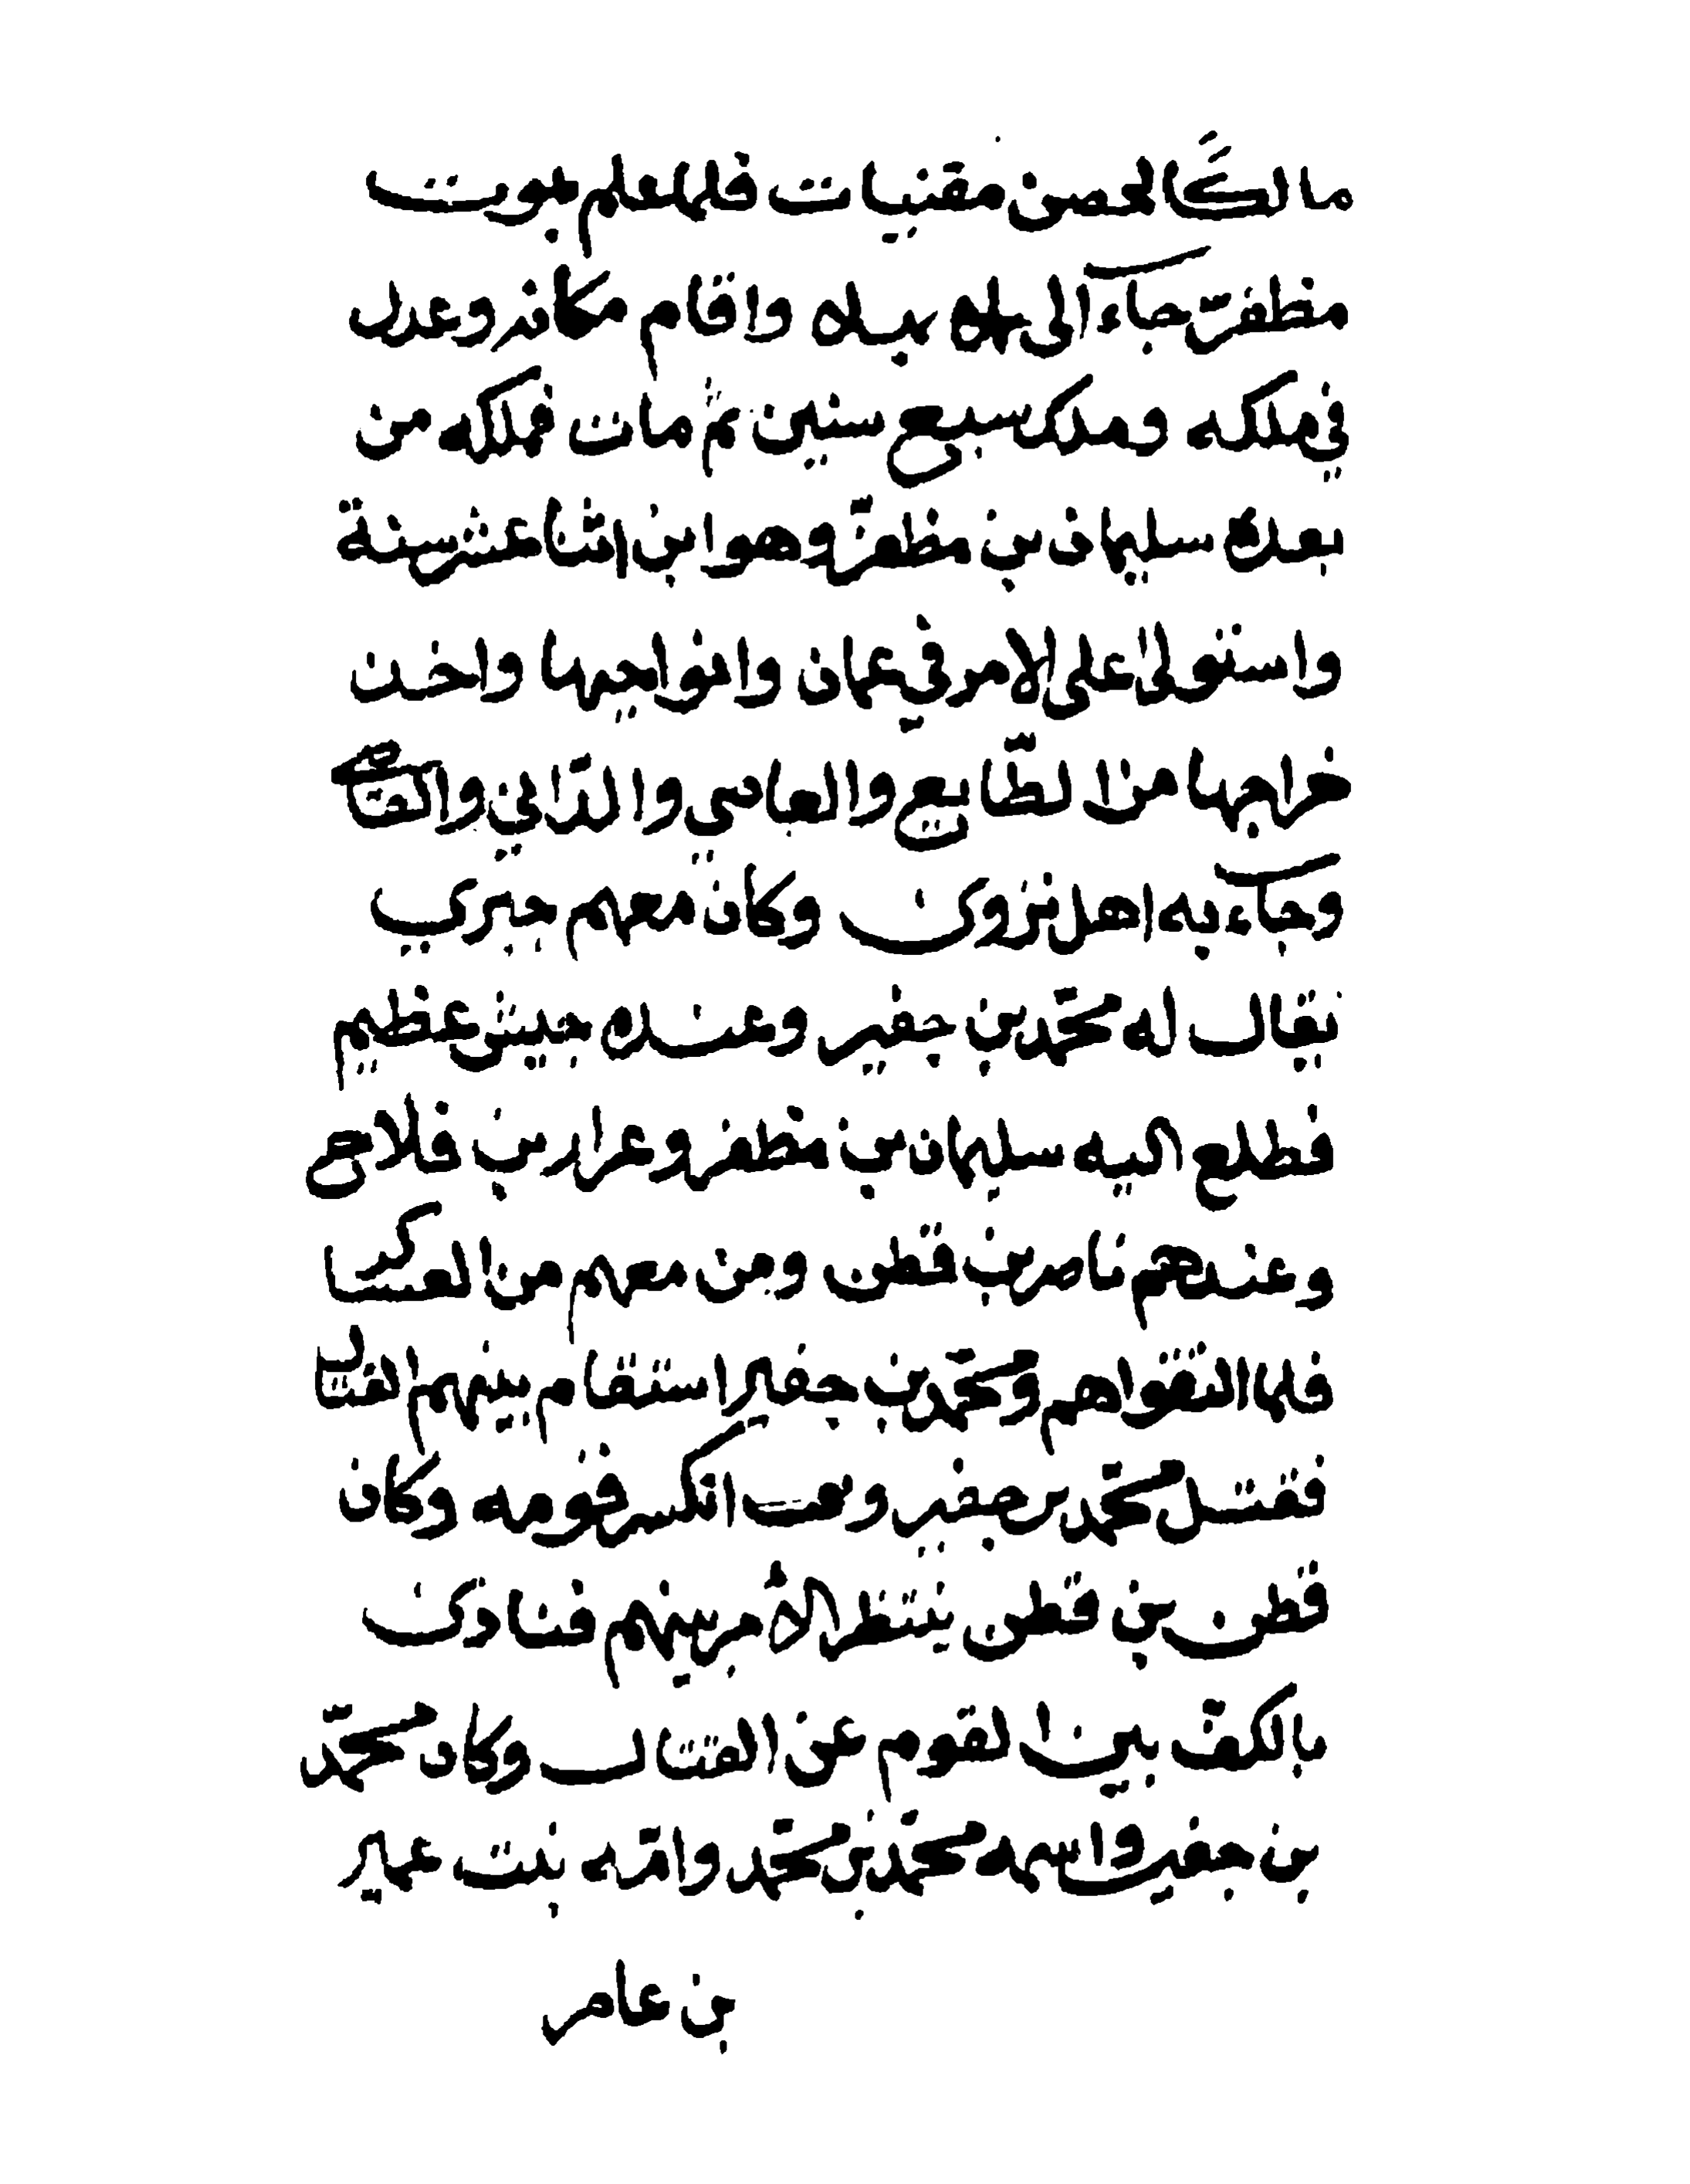 مالكًا لحصن مقنيات فلما علم بموت
مظفرّ جآء الى بهلاه واقام مكانه وعدل
في ملكه وملك سبع سنين ثم مات فملكه من
بعده سليمان بن مظفرّ وهو ابن اثنا عشر سنة
واستولىٰ على الامر في عمان وانواحيها واخذ
خراجها من الطّايع والعاصي والدّاني والقاصي
وجآء به اهل نزوى وكان معهم جبري
يقال له محمّد بن جفير وعنده جيش عظيم
فطلع اليه سليمان بن مظفر وعرار بن فلاح
وعندهم ناصر بن قطن ومن معهم من العساكر
فلما التقوا هم ومحمّد بن جفير استقام بينهم القتال
فقتل محمّد بن جفير وانكسر قومه وكان
قطن بن قطن ينتظر الأمر بينهم فنادى
بالكفّ بين القوم عن القتال وكان محمّد
بن جفير واسمه محمّد بن محمّد وامّه بنت عمير
بن عامر